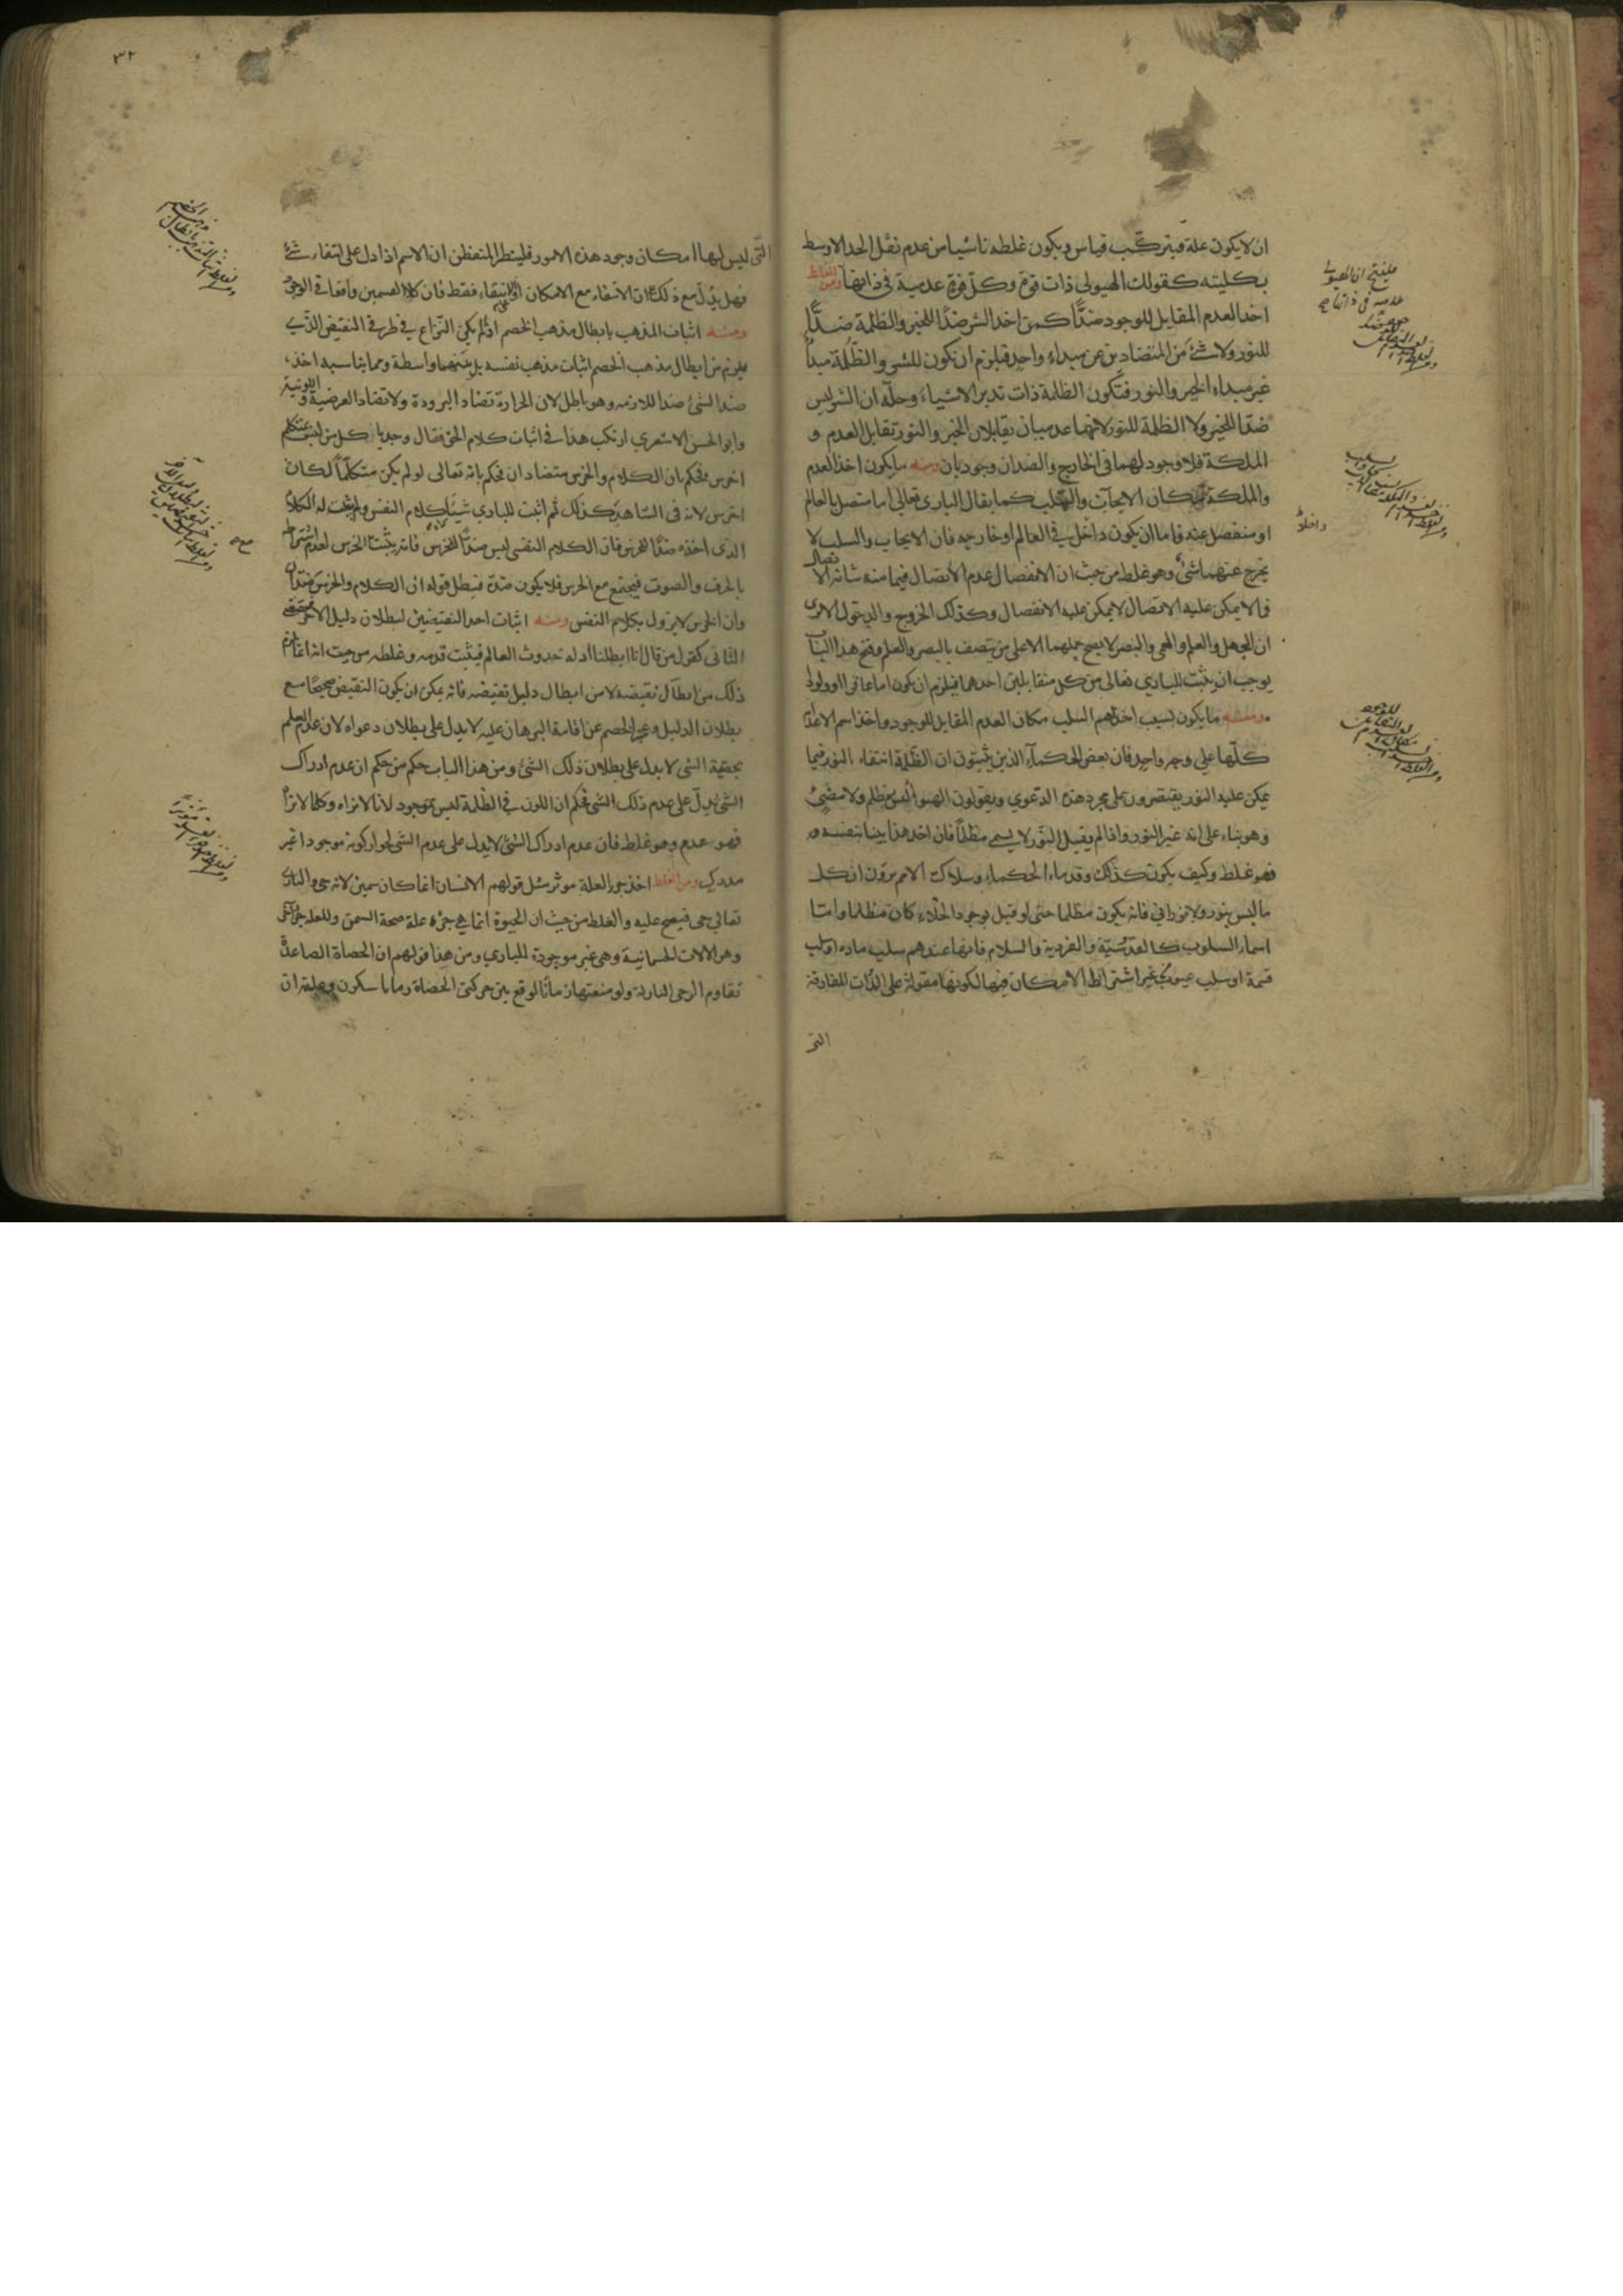 ان لا يكون علة فيتركّب قياس ويكون غلطه ناشيا من عدم نقل الحد الاوسط
بكليته كقولك الهيولى ذات قوة وكل قوة عدمية فى ذاتها ومن الغلط
اخذ العدم المقابل للوجود ضدًّا كمن اخذ الشر ضدًّا للخير والظلمة ضدًّا
للنور ولا شئ من المتضادين عن مبداء واحد فيلزم ان تكون للشر والظّلمة مبدأ
غير مبداء الخير والنور فتكون الظلمة ذات تدبر الاشياء وحلّه ان الشر ليس
ضدّا للخير ولا الظلمة للنور لانهما عدميان تقابلان الخير والنور تقابل العدم و
الملكة فلا وجود لهما فى الخارج والضدان وجوديان ومنه ما يكون اخذ العدم
والملكة مكان الايجاب والسلب كما يقال البارى تعالى اما متصل بالعالم
او منفصل عنه فاما ان يكون داخل فى العالم او خارجه فان الايجاب والسلب لا
يخرج عنهما شئ وهو غلط من حيث ان الانفصال عدم الاتصال فيما من شانه الاتصال
فما لا يمكن عليه الاتصال لا يمكن عليه الانفصال وكذلك الخروج والدخول الا ترى
ان الجهل والعلم والعمى والبصر لا يصح حملهما الا على من يتصف بالبصر والعلم وفتح هذا الباب
يوجب ان يثبت للبارى تعالى من كل متقابلين احدهما فيلزم ان يكون اما
ومنه ما يكون بسبب اخذهم السلب مكان العدم المقابل للوجود واخذ اسم الاعدام
كلّها على وجه واحد فان بعض الحكماء الذين يثبتون ان الظّلمة انتفاء النور فيما
يمكن عليه النور يقتصرون على مجرد هذه الدعوى ويقولون الهواء ليس بمظلم ولا مضئ
وهو بناء على انه غير النور واذا لم يقبل النّور لا يسمى مظلمًا فان اخذ هذا بينا بنفسه
فهو غلط وكيف يكون كذلك وقدماء الحكماء وسلاك الامم يرون ان كل
ما ليس بنور ولا نورانى فانه يكون مظلما حتى لو قيل بوجود الخلاء كان مظلما واما
اسماء السلوب كالقدّسيّة والفردية والسلام فانها عندهم سلب مادة او سلب
قسمة او سلب عيوب بغير اشتراط الامكان فيها لكونها مقولة على الذّات المفارقة
التى
فلينتج ان الهيولى
عدمية فى ذاتها صح
داخلاً
٣٢
التّى ليس لها امكان وجود هذه الامور فلينظر المتفطن ان الاسم اذا دل على انتفاء شئ
فهل يدلّ مع ذلك ان الانتفاء مع الامكان او الانتفاء فقط فان كلا القسمين واقعا فى الوجود
ومنه اثبات المذهب بابطال مذهب الخصم اذا لم يكن النّزاع فى طرفى النقيض الذى
يلزم من ابطال مذهب الخصم اثبات مذهب نفسه بل بينهما واسطة ومما يناسبه اخذ
ضد الشئ ضدا للازمه وهو باطل لان الحرارة تضاد البرودة ولا تضاد العرضية و اللونية
وابو الحسن الاشعرى ارتكب هذا فى اثبات كلام الحق فقال وجدنا كل من ليس بمتكلم
اخرس فحكم بان الكلام والخرس متضادان فحكم بانه تعالى لو لم يكن متكلّما لكان
اخرس لانه فى الشاهد كذلك ثم اثبت للبارى شيئا كلام النفس ولم يثبت له الكلام
الذى اخذه ضدًّا للخرس فان الكلام النفسى ليس ضدًّا للخرس فانه يثبت الخرس لعدم اشتراطه
بالحرف والصوت فيجتمع مع الخرس فلا يكون ضدّه فبطل قوله ان الكلام والخرس ضدان
وان الخرس لا يزول بكلام النفس ومنه اثبات احد النقيضين لبطلان دليل الاخر
الثانى كقول من قال انا ابطلنا ادلة حدوث العالم فيثبت قدمه وغلطه من حيث انه انما يلزم
ذلك من ابطال نقيضه لا من ابطال دليل نقيضه فانه يمكن ان يكون النقيض صحيحًا مع
بطلان الدليل وعجز الخصم عن اقامة البرهان عليه لا يدل على بطلان دعواه لان عدم العلم
بحقية الشئ لا يدل على بطلان ذلك الشئ ومن هذا الباب حكم من حكم ان عدم ادراك
الشئ يدلّ على عدم ذلك الشئ فحكم ان اللون فى الظلمة ليس بموجود لانا لا نراه وكلما لا نراه
فهو عدم وهو غلط فان عدم ادراك الشئ لا يدل على عدم الشئ لجواز كونه موجودا غير
مدرك ومن الغلط اخذ جزء العلة موثر مثل قولهم الانسان انما كان سمين لانه حى والبارى
تعالى حى فيصح عليه والغلط من حيث ان الحيوة انما هى جزء علة صحة السمن وللعلة جزء آخر
وهو الالات الجسمانية وهى غير موجودة للبارى ومن هذا قولهم ان الحصاة الصاعدة
تقاوم الرحى النازلة ولو منعتها زمانًا لوقع بين حركتى الحصاة زمانا سكون وعلته ان
صح